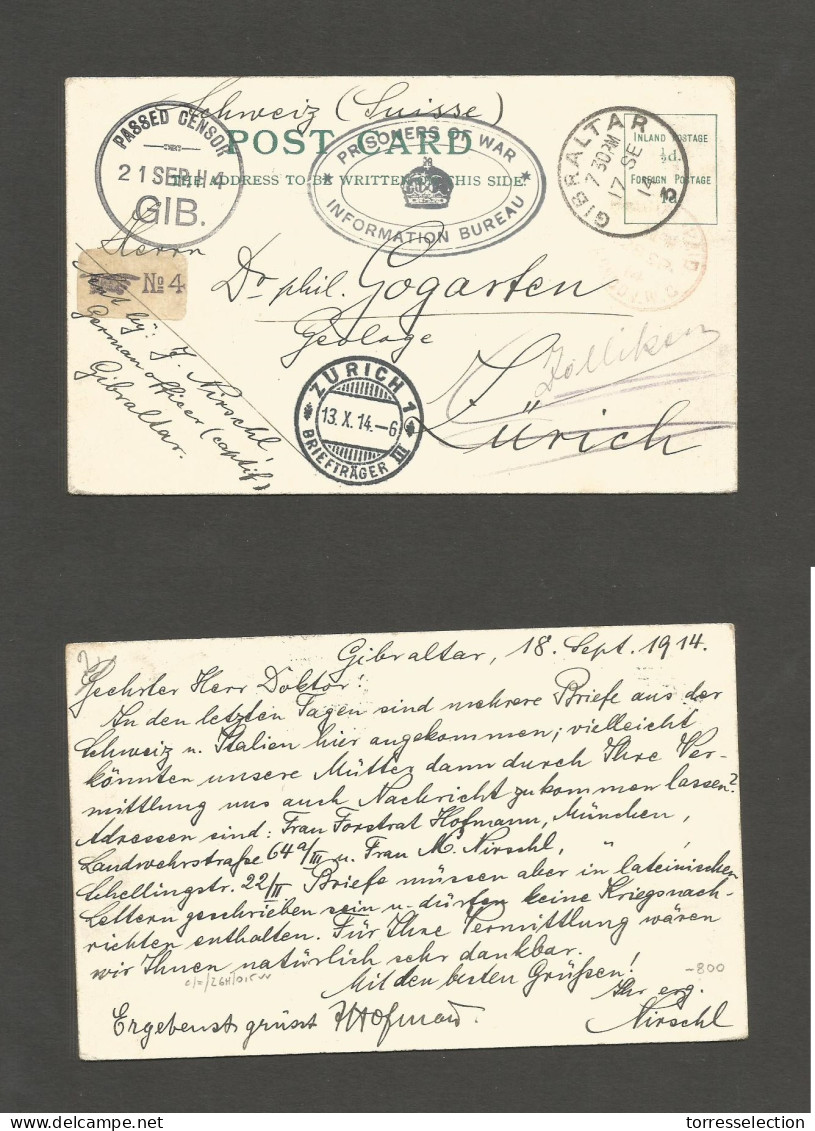 Schweiz (Suisse)
POST CARD
THE ADDRESS TO BE WRITTEN ON THIS SIDE.
PASSED CENSOR
21 SEP 14
GIB.
PRISONERS OF WAR
INFORMATION BUREAU
GIBRALTAR
7 30PM
17 SE
14
INLAND POSTAGE
½d.
FOREIGN POSTAGE
1d.
Herrn
Nº 4
Dr. phil. Gogarten
Geologe
Zollikon
Zürich
Sent by: J. Nirschl,
German officer (captif)
Gibraltar.
ZÜRICH 1
13. X. 14.-6
BRIEFTRÄGER III
Gibraltar, 18. Sept. 1914.
Geehrter Herr Doktor!
In den letzten Tagen sind mehrere Briefe aus der
Schweiz u. Italien hier angekommen; vielleicht
könnten unsere Mütter dann durch Ihre Ver-
mittlung uns auch Nachricht zukommen lassen?
Adressen sind: Frau Forstrat Hofmann, München,
Landwehrstraße 64 a/III u. Frau M. Nirschl, "
Schellingstr. 22/II Briefe müssen aber in lateinischen
Lettern geschrieben sein u. dürfen keine Kriegsnach-
richten enthalten. Für Ihre Vermittlung wären
wir Ihnen natürlich sehr dankbar.
Mit den besten Grüßen!
-800
Ihr erg.
Ergebenst grüsst Hofmann.
Nirschl
torresselection